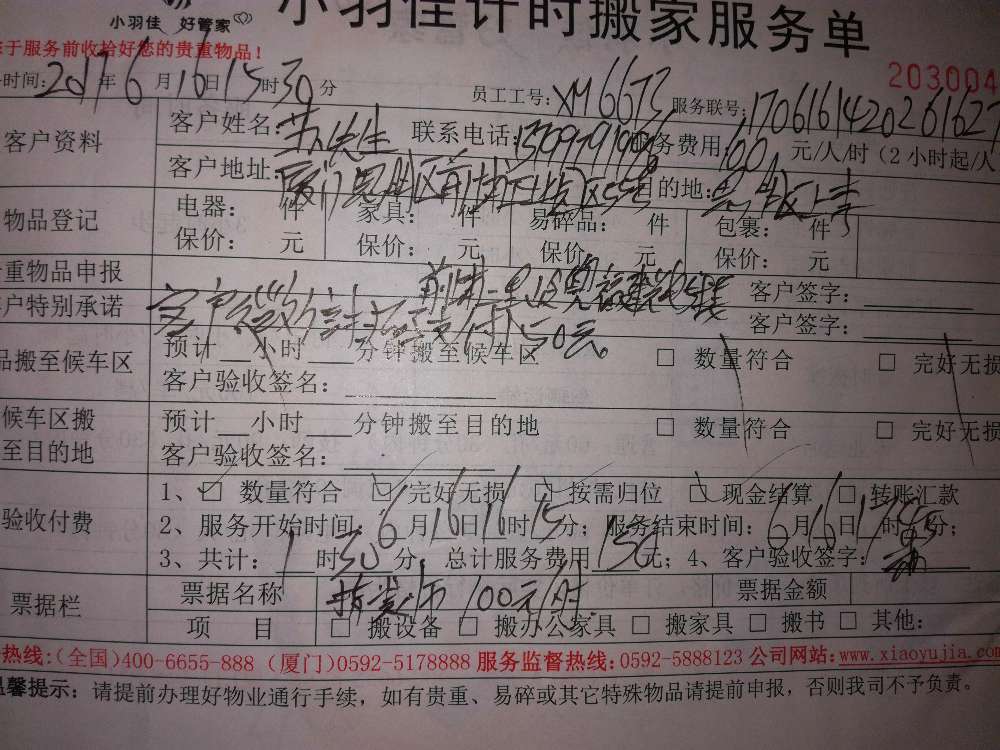 小羽佳 好管家
小羽佳计时搬家服务单
于服务前收拾好您的贵重物品！
时间：2017年6月16日15时30分 员工工号：XM6673 服务联号：1706161420261627
203004
客户资料 客户姓名：苏先生 联系电话： 服务费用：100元/人/时（2小时起/人
客户地址：厦门思明区 目的地：
物品登记 电器： 件 家具： 件 易碎品： 件 包裹： 件
保价： 元 保价： 元 保价： 元 保价： 元
重物品申报 客户签字：
户特别承诺 客户微信支付150元。 客户签字：
品搬至候车区 预计 小时 分钟搬至候车区 □ 数量符合 □ 完好无损
客户验收签名：
候车区搬至目的地 预计 小时 分钟搬至目的地 □ 数量符合 □ 完好无损
客户验收签名：
验收付费 1、☑ 数量符合 ☑ 完好无损 ☑ 按需归位 ☑ 现金结算 □ 转账汇款
2、服务开始时间：6月16日16时15分；服务结束时间：6月16日17时45分；
3、共计：1时30分，总计服务费用150元；4、客户验收签字：
票据栏 票据名称 指导价100元/时 票据金额
项 目 □ 搬设备 □ 搬办公家具 □ 搬家具 □ 搬书 □ 其他：
热线：（全国）400-6655-888（厦门）0592-5178888 服务监督热线：0592-5888123 公司网站：www.xiaoyujia.com
温馨提示：请提前办理好物业通行手续，如有贵重、易碎或其它特殊物品请提前申报，否则我司不予负责。